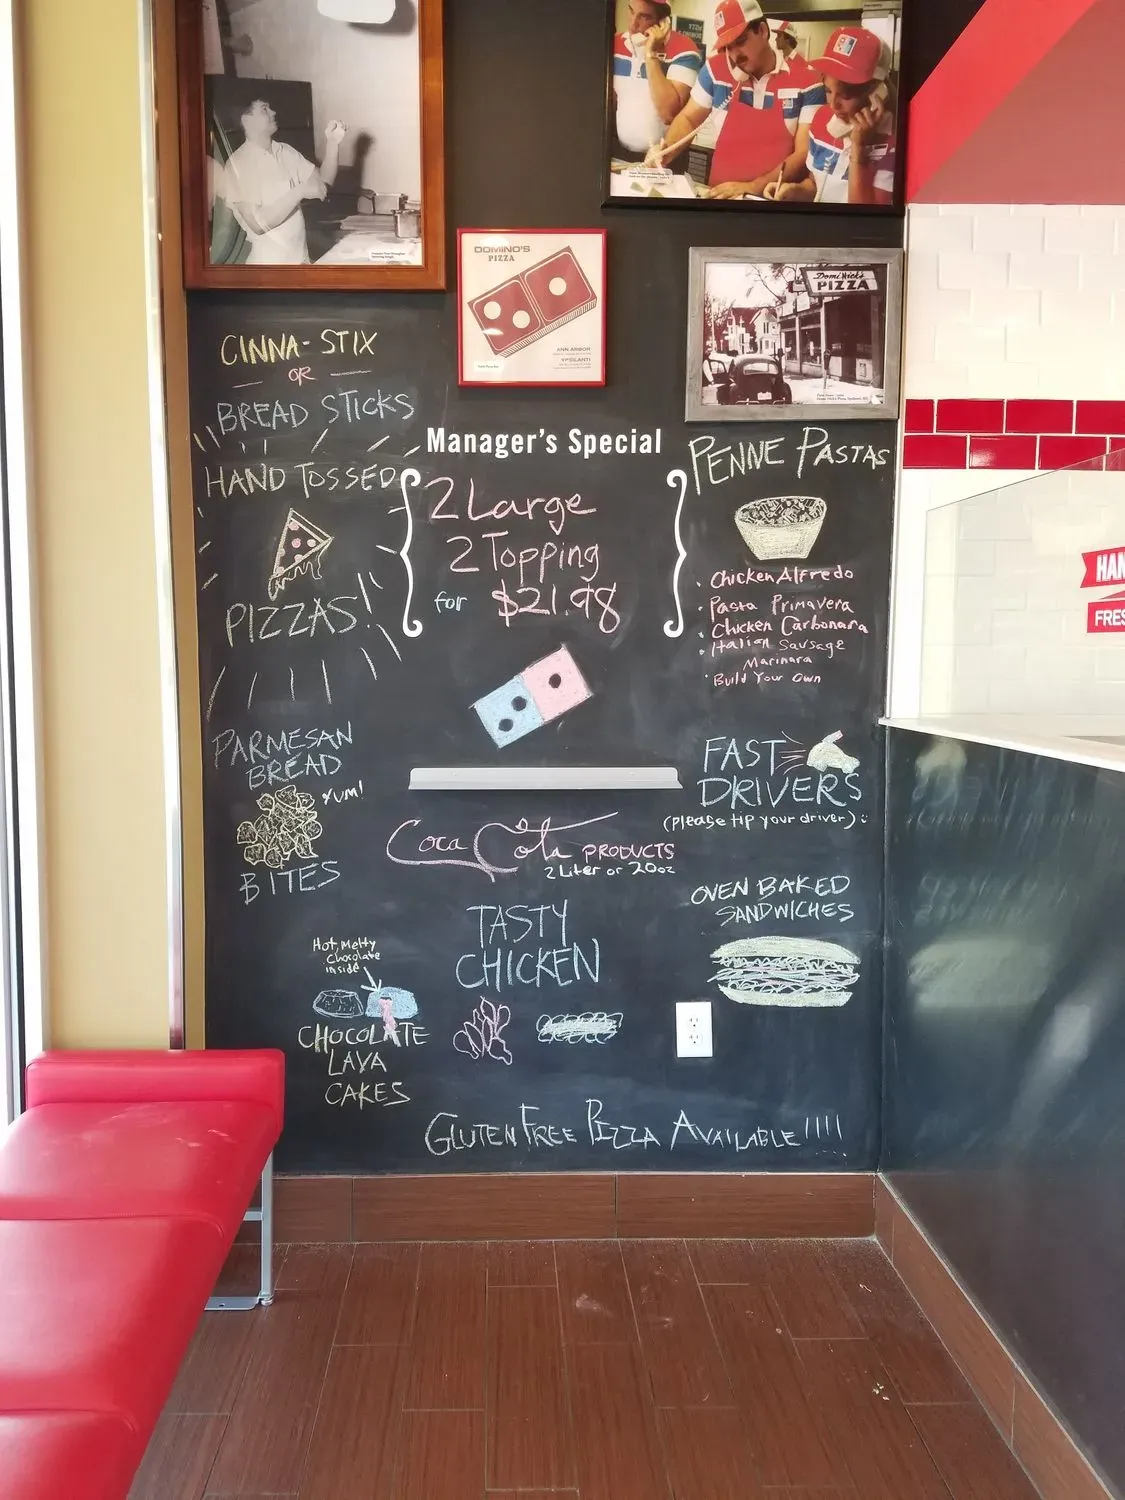 DOMINO'S
PIZZA
ANN ARBOR
YPSILANTI
Domi Nick's
PIZZA
CINNA-STIX
OR
BREAD STICKS
HAND TOSSED
PIZZAS!
Manager's Special
2 Large
2 Topping
for $21.98
PENNE PASTAS
· Chicken Alfredo
· Pasta Primavera
· Chicken Carbonara
· Italian Sausage
Marinara
· Build Your Own
PARMESAN
BREAD
YUM!
BITES
FAST
DRIVERS
(Please tip your driver) :
Coca Cola PRODUCTS
2 Liter or 20oz
OVEN BAKED
SANDWICHES
TASTY
CHICKEN
Hot, Melty
Chocolate
inside
CHOCOLATE
LAVA
CAKES
GLUTEN FREE PIZZA AVAILABLE!!!!
HAN
FRES